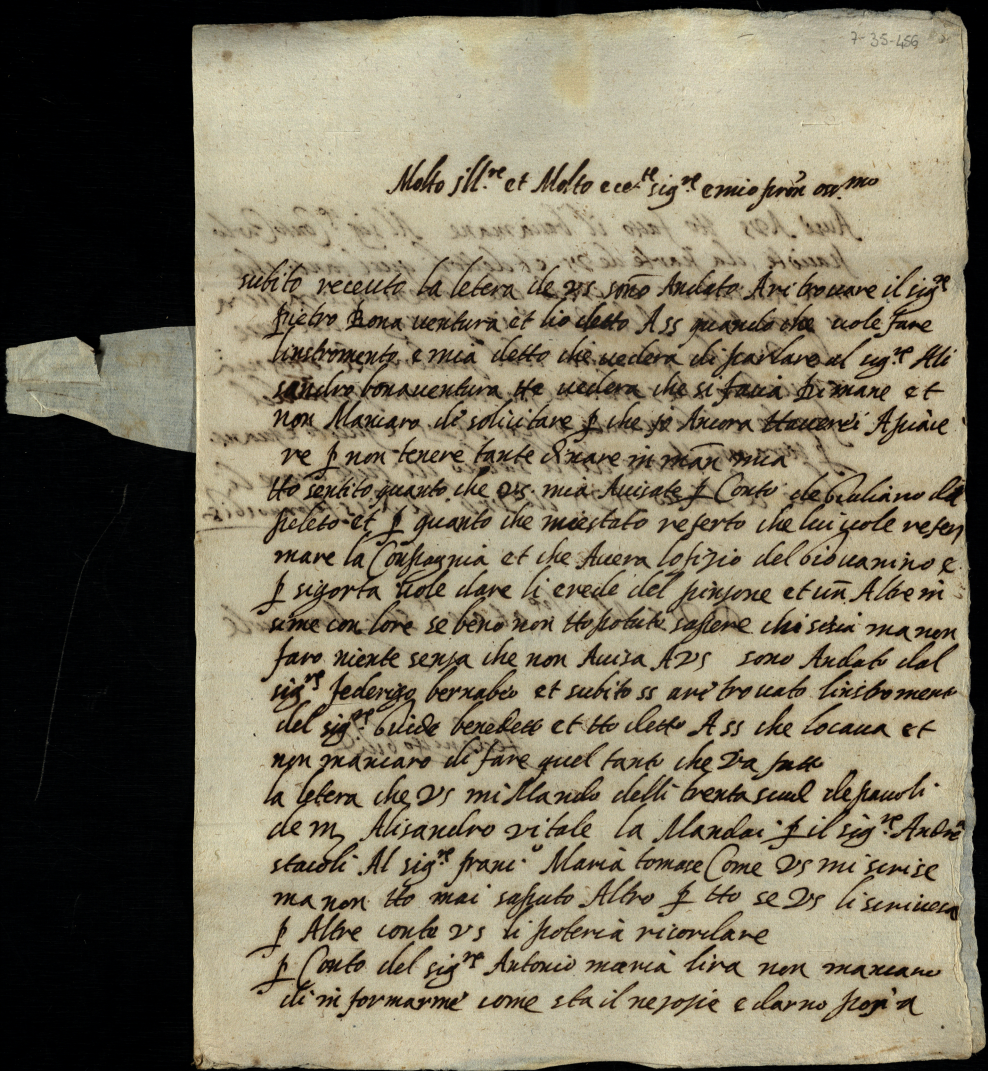 7-35-456
Molto jll.re et Molto ecc.te sig.re e mio pron oss.mo
subito receuto la letera de vs sono Andato A ritrovare il sig.re
pietro Bona ventura et lio detto A ss quando che vole fare
linstromento e mia detto che vedera di parlare al sig.re Ali
sandro bonaventura He vedera che si facia et
non Mancaro di solicitare p che jo Ancora Haverei Apiace
re p non tenere tante dinare in man mia
Ho sentito quanto che vs mia Avisate p Conto de Giuliano
peleto et p quanto che mie stato referto che lui vole refer
mare la Conpagnia et che Avera lofizio del Giovanino e
p sigorta vole dare li erede del pinzone et un Altre in
sime con lore se bene non Ho potuto sapere chi sisia ma non
faro niente senza che non Avisa A vs sono Andato dal
sig.re federigo bernabeo et subito ss a ritrovato linstromento
del sig.re Guido benedetti et Ho detto A ss che locava et
non mancaro di fare quel tanto che va fatto
la letera che vs mi Mando delli trenta scudi de pavoli
de m Alisandro vitale la Mandai p il sig.re Andre
stacoli Al sig.re franc.o Maria tomase Come vs mi scrise
ma non Ho mai saputo Altro p Ho se vs li scrivera
p Altre conto vs li poteria ricordare
p Conto del sig.re Antonio maria lira non mancaro
di in formarme come sta il negosie e darno